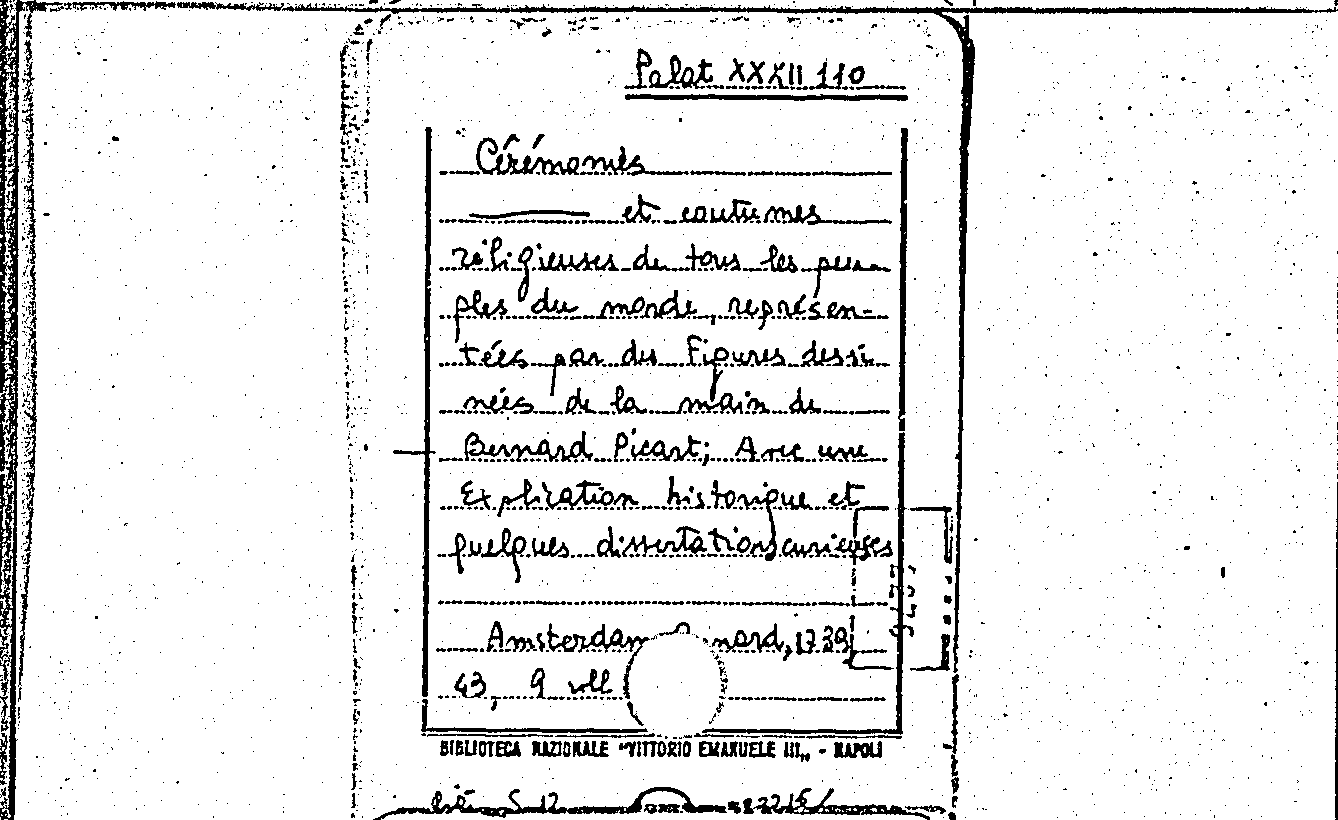 Palat XXXII 110
Cérémonies
et coutumes
réligieuses de tous les peu-
ples du monde, représen-
tées par des Figures dessi
nées de la main de
Bernard Picart; Avec une
Explication historique et
quelques dissertations curieuses
Amsterdam nard, 1739
43, 9 vll
BIBLIOTECA NAZIONALE "VITTORIO EMANUELE III„ - NAPOLI